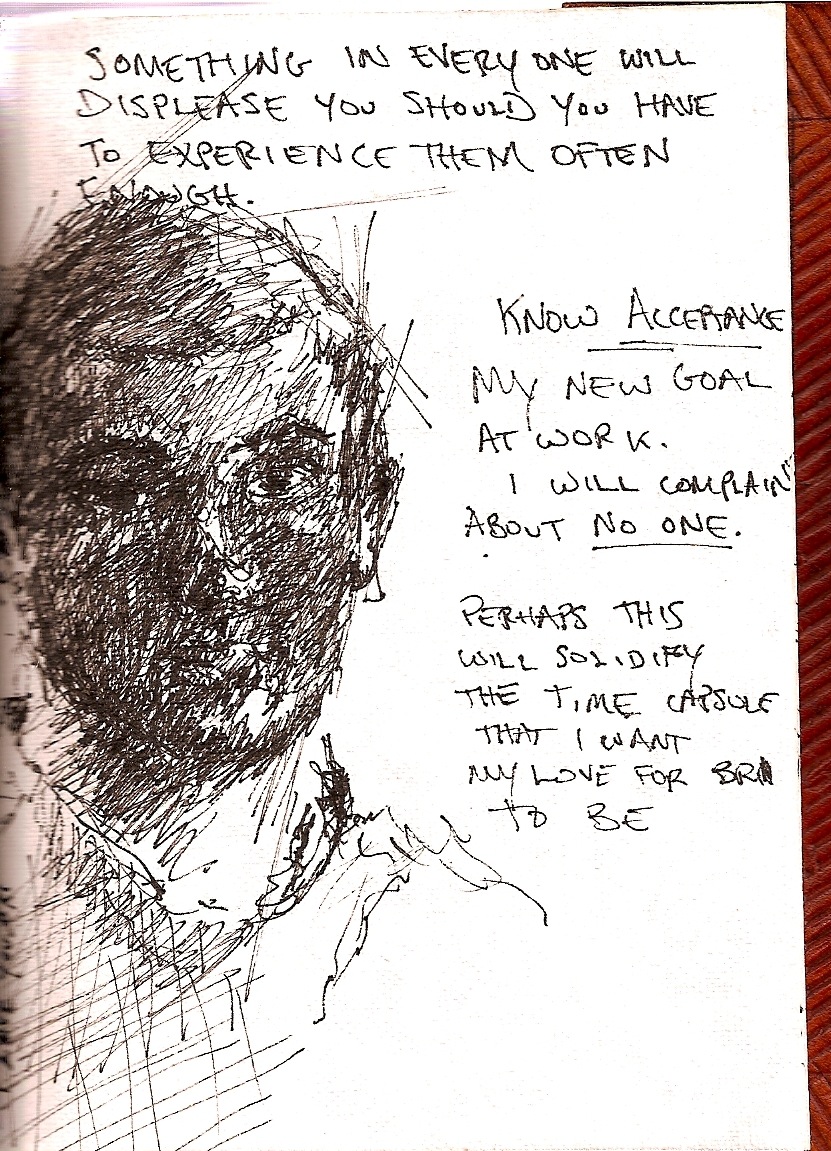 SOMETHING IN EVERYONE WILL
DISPLEASE YOU SHOULD YOU HAVE
TO EXPERIENCE THEM OFTEN
ENOUGH.
KNOW ACCEPTANCE
MY NEW GOAL
AT WORK.
I WILL COMPLAIN
ABOUT NO ONE.
PERHAPS THIS
WILL SOLIDIFY
THE TIME CAPSULE
THAT I WANT
MY LOVE FOR
TO BE